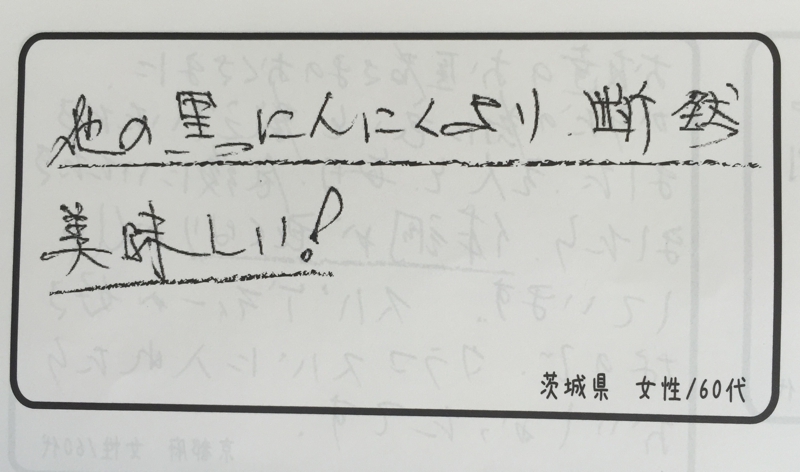 他の黒にんにくより断然
美味しい!
茨城県 女性/60代